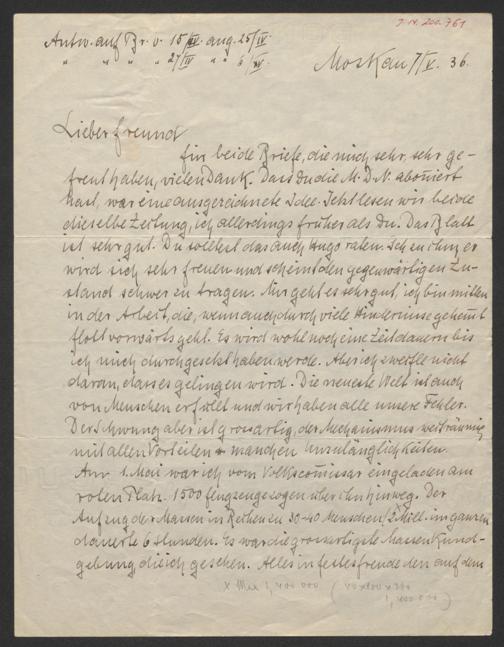 J.N. 200.761
Antw. auf Br. v. 15/IV. ang. 25/IV.
" " " " 27/IV " " 6/V.
Moskau 7/V. 36.
Lieber Freund
für beide Briefe, die mich sehr, sehr ge-
freut haben, vielen Dank. Dass Du die M.D.N. aboniert
hast, war eine ausgezeichnete Idee. Jetzt lesen wir beide
dieselbe Zeitung, ich allerdings früher als Du. Das Blatt
ist sehr gut. Du solltest das auch Hugo raten. Ich zu ihm, er
wird sich sehr freuen und scheint den gegenwärtigen Zu-
stand schwer zu tragen. Mir geht es sehr gut, ich bin mitten
in der Arbeit, die, wenn auch durch viele Hindernisse gehemmt
flott vorwärts geht. Es wird wohl noch eine Zeit dauern bis
ich mich durchgesetzt haben werde. Aber ich zweifle nicht
daran, dass es gelingen wird. Die neueste Welt ist auch
von Menschen erfüllt und wir haben alle unsere Fehler.
Der Schwung aber ist grossartig, der Mechanismus weiträumig
mit allen Vorteilen manchen Unzulänglichkeiten.
Am 1. Mai war ich vom Volkscomissar eingeladen am
roten Platz. 1500 Flugzeuge zogen über ihn hinweg. Der
Aufzug der Massen in Reihen zu 30-40 Menschen /2 Mill. im ganzen
dauerte 6 Stunden. Es war die grossartigste Massenkund-
gebung die ich gesehen. Alles in festesfreude den auf dem